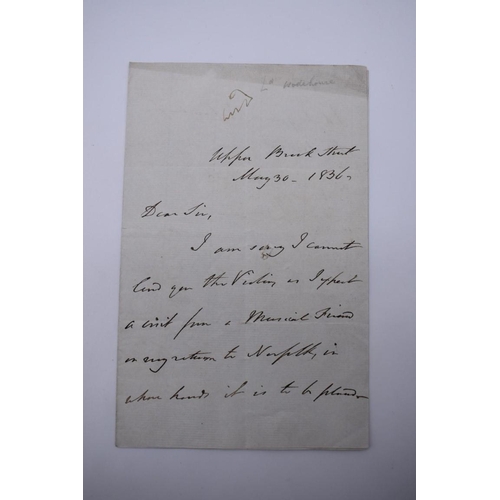 Ld Wodehouse
Upper Brook Street
May 30 - 1836 -
Dear Sir,
I am sorry I cannot
lend you the Violin as I expect
a visit from a Musical Friend
on my return to Norfolk, in
whose hands it is to be placed